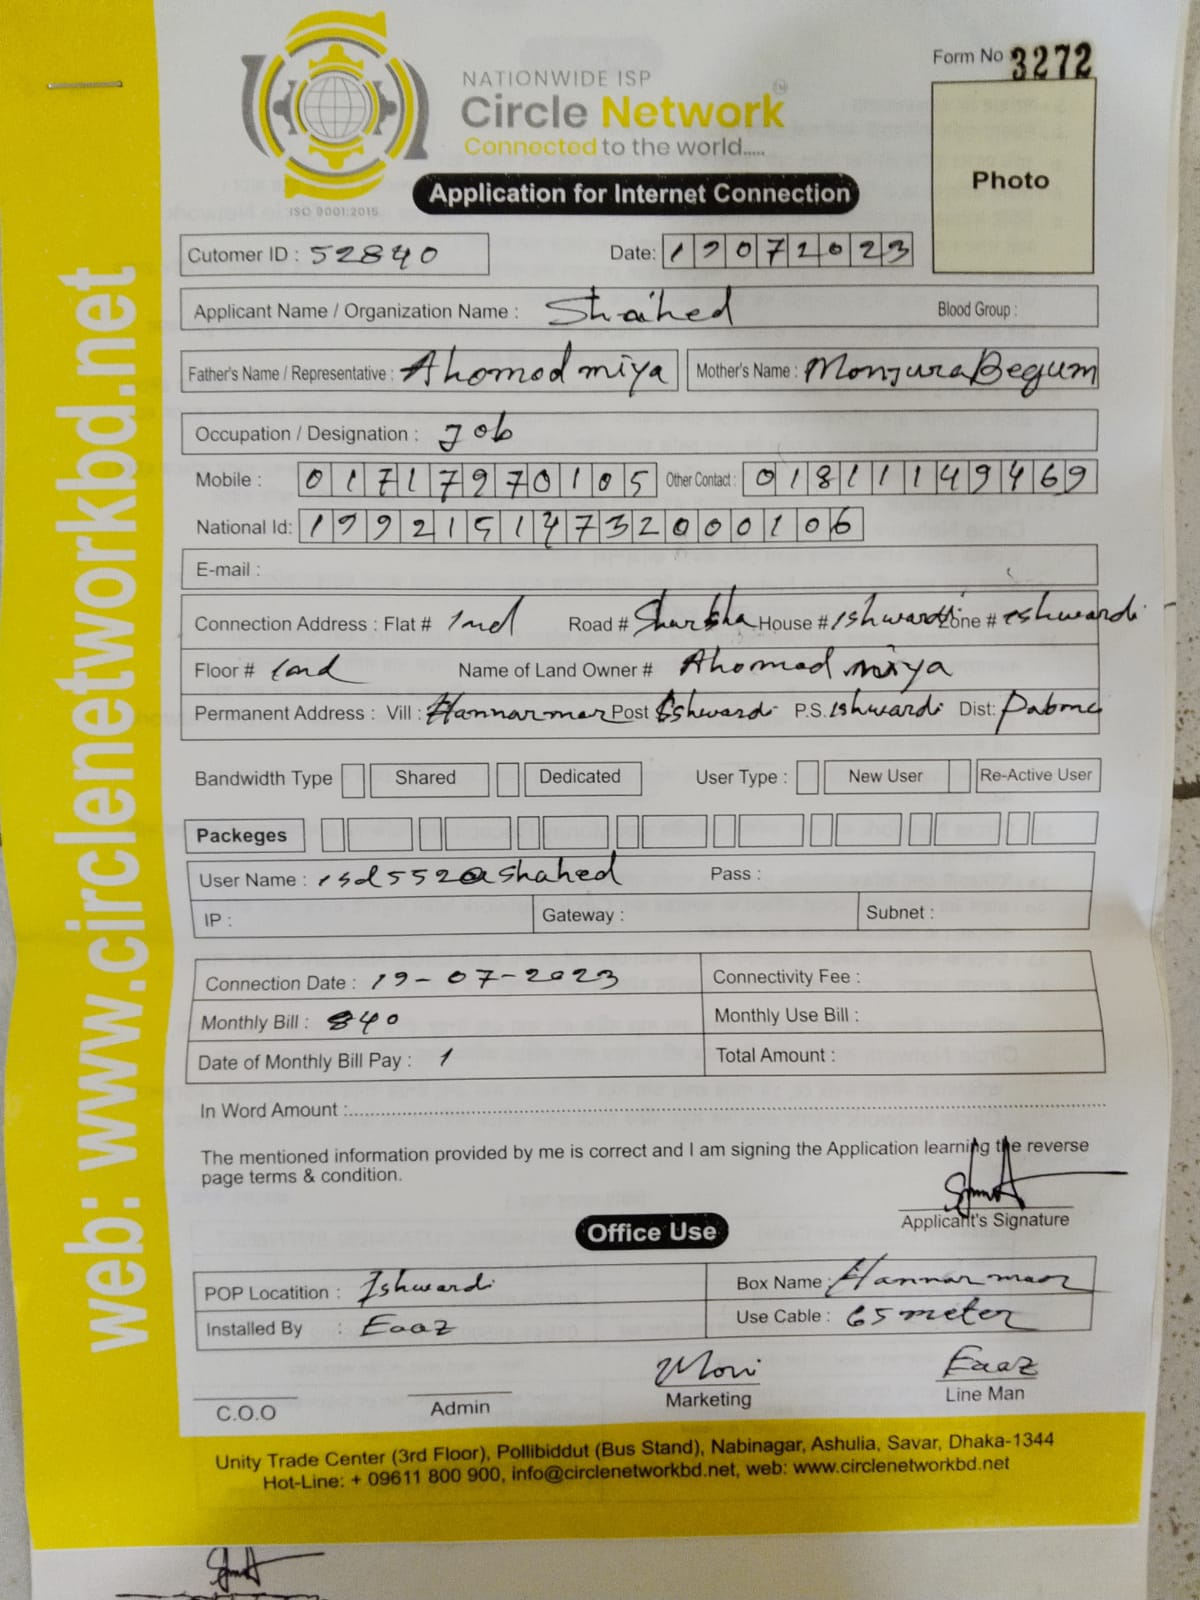 Form No 3272
NATIONWIDE ISP
Circle Network
Connected to the world.....
ISO 9001:2015
Application for Internet Connection
Photo
Cutomer ID : 52840 Date: 19072023
Applicant Name / Organization Name : Shaihed Blood Group :
Father's Name / Representative : Ahomod miya Mother's Name : Monjura Begum
Occupation / Designation : Job
Mobile : 01717970105 Other Contact : 01811149469
National Id: 19921514732000106
E-mail :
Connection Address : Flat # 1nd Road # House # Ishwardi Zone # eshwardi
Floor # 1nd Name of Land Owner # Ahomad miya
Permanent Address : Vill : Hannarmar Post Eshwardi P.S. Ishwardi Dist: Pabna
Bandwidth Type Shared Dedicated User Type : New User Re-Active User
Packeges
User Name : isd552@shahed Pass :
IP : Gateway : Subnet :
Connection Date : 19-07-2023 Connectivity Fee :
Monthly Bill : 840 Monthly Use Bill :
Date of Monthly Bill Pay : 1 Total Amount :
In Word Amount :
The mentioned information provided by me is correct and I am signing the Application learning the reverse
page terms & condition.
Applicant's Signature
Office Use
POP Locatition : Ishwardi Box Name : Hannarmaor
Installed By : Eaaz Use Cable : 65 meter
Moni Eaaz
C.O.O Admin Marketing Line Man
Unity Trade Center (3rd Floor), Pollibiddut (Bus Stand), Nabinagar, Ashulia, Savar, Dhaka-1344
Hot-Line: + 09611 800 900, info@circlenetworkbd.net, web: www.circlenetworkbd.net
web: www.circlenetworkbd.net